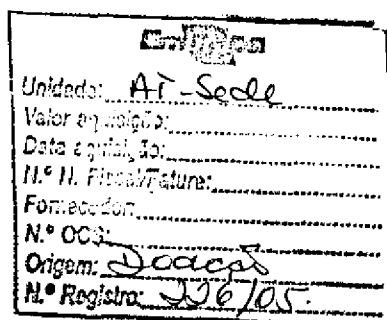 Embrapa
Unidade: AI-Sede
Valor aquisição:
Data aquisição:
N.º N. Fiscal/Fatura:
Fornecedor:
N.º OCS:
Origem: Doação
N.º Registro: 226/05